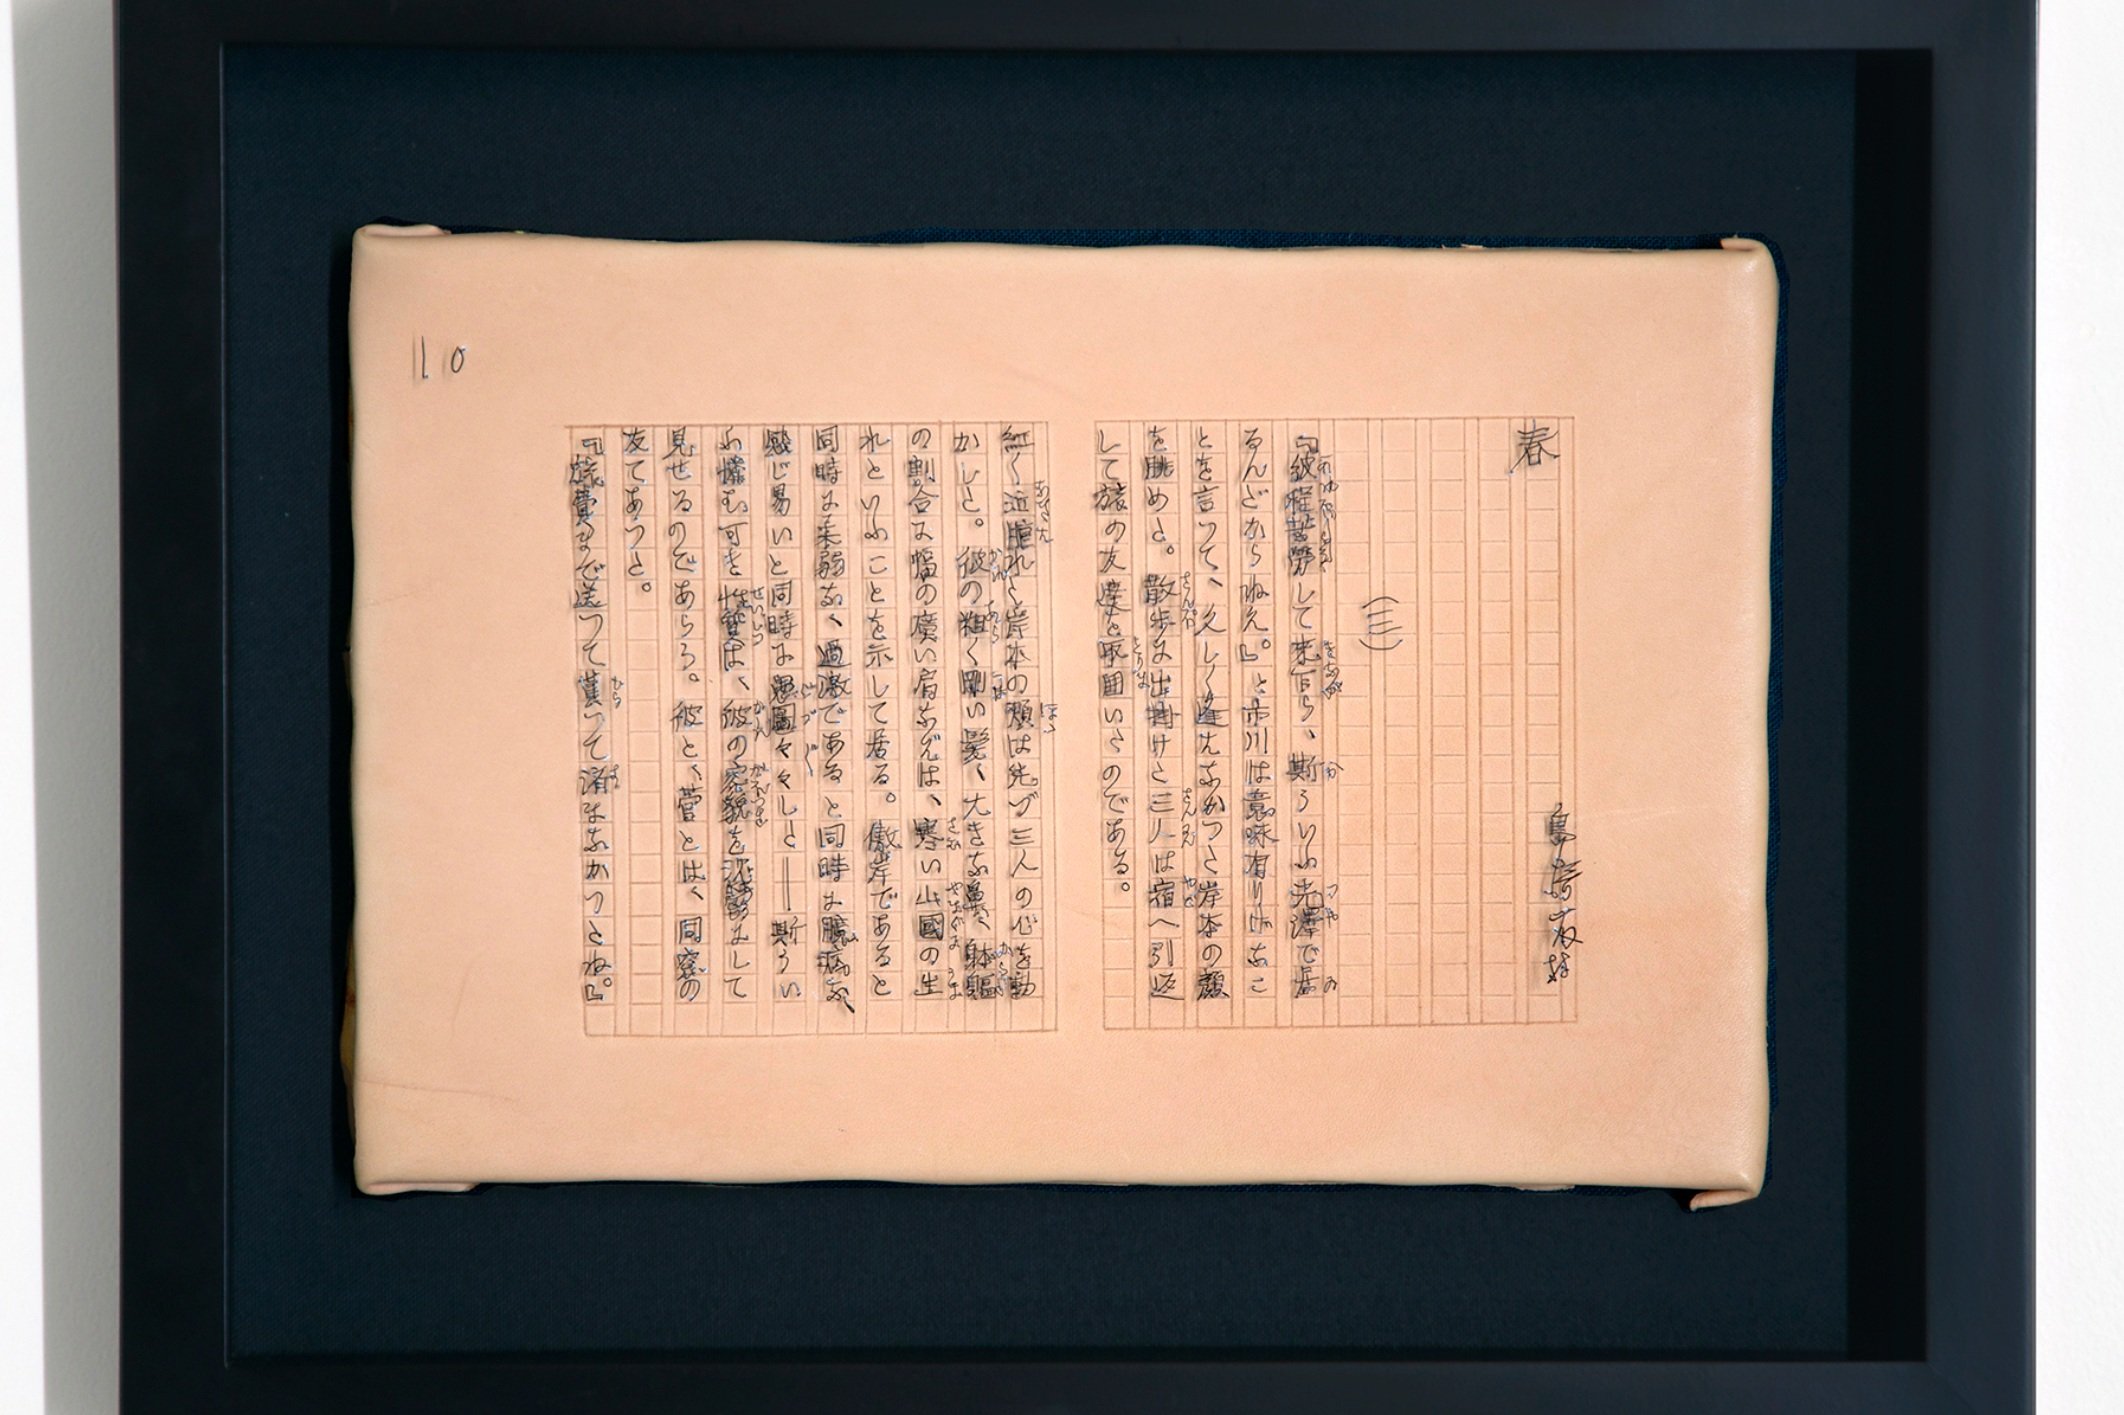 春
島崎藤村
(三)
『彼程苦勞して來乍ら、斯ういふ光澤で居
るんだからねえ。』と市川は意味有りげなこ
とを言つて、久しく逢はなかつた岸本の顏
を眺めた。散歩に出掛けた三人は宿へ引返
して旅の友達を取囲いたのである。
紅く腫れた岸本の頬は先づ三人の心を動
かした。彼の粗く剛い髮、大きな鼻、躰軀
の割合に幅の廣い肩なぞは、寒い山國の生
れといふことを示して居る。傲岸であると
同時に柔弱な、過激であると同時に臆病な、
感じ易いと同時に愚圖々々した――斯うい
ふ憐む可き性質は、彼の容貌を沈鬱にして
見せるのであらう。彼と、菅とは、同窓の
友であつた。
『旅費まで送つて貰つて済まなかつたね。』
110